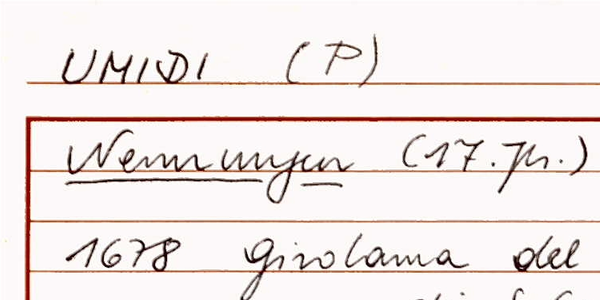 UMIDI (P)
Nennungen (17. Jh.)
1678 Girolama del